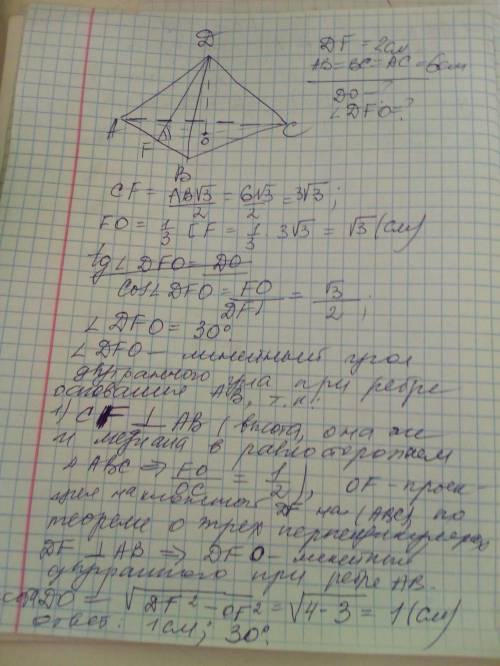 D
DF = 2см
AB = BC = AC = 6см
DO — ?
∠DFO = ?
A
O
C
F
B
CF = AB√3/2 = 6√3/2 = 3√3;
FO = 1/3 CF = 1/3 3√3 = √3 (см)
tg∠DFO = DO
cos∠DFO = FO/DF = √3/2;
∠DFO = 30°.
∠DFO — линейный угол
двугранного угла при ребре
основания AB, т.к.
1) CF ⊥ AB (высота, она же
и медиана в равностороннем
Δ ABC ⇒ FO/OC = 1/2), OF – проек-
ция наклонной DF на (ABC) по
теореме о трех перпендикулярах
DF ⊥ AB ⇒ DFO – линейный
двугранного при ребре AB.
DO = √DF² – OF² = √4 – 3 = 1 (см)
ответ: 1см; 30°.